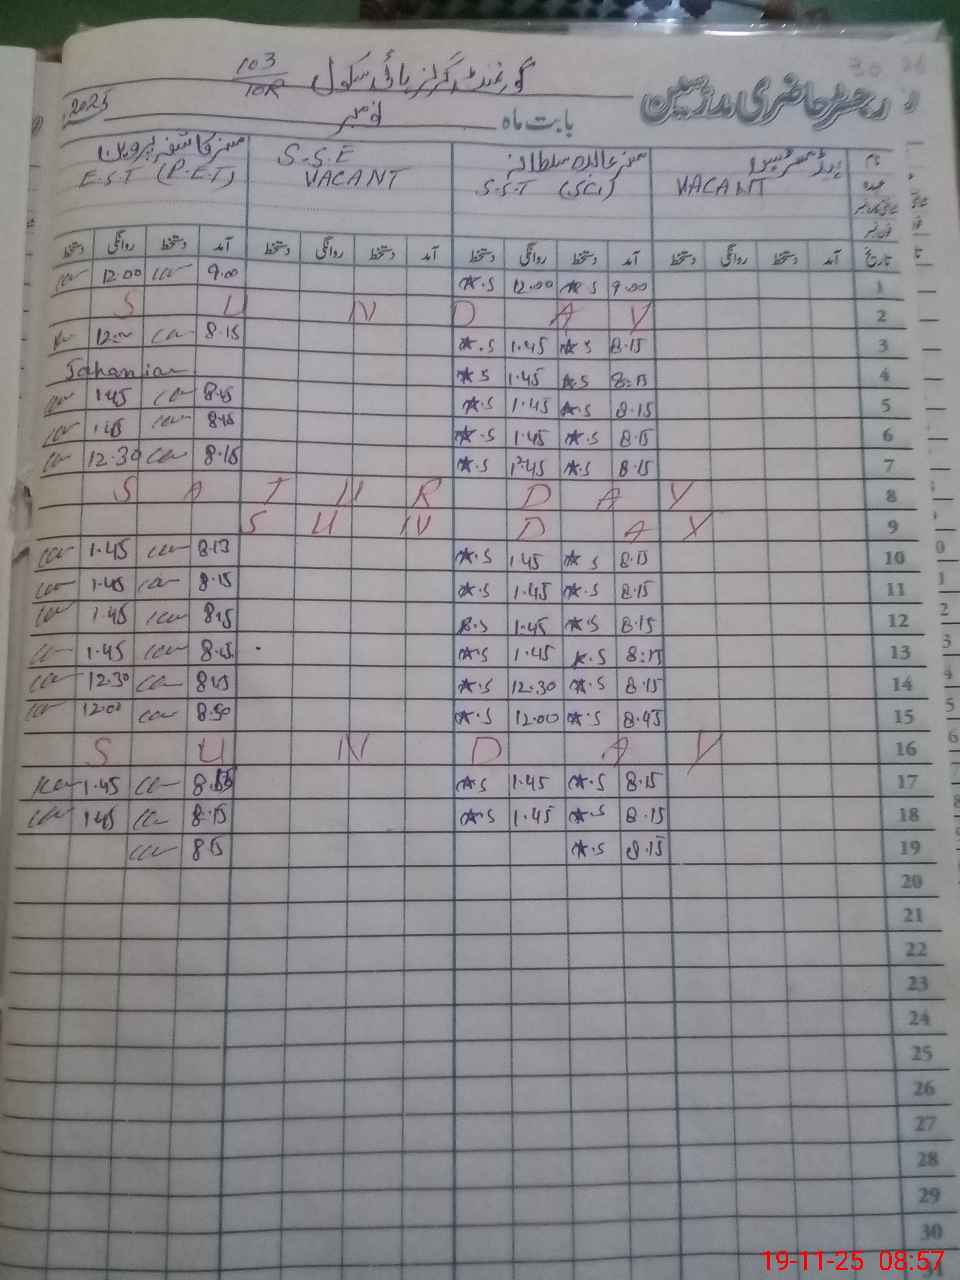 گورنمنٹ گرلز ہائی سکول 103/10R
رجسٹر حاضری مدرسین
بابت ماہ نومبر 2025
نام ہیڈ مسٹریس مسز عابدہ سلطانہ S.S.E مسز کاشفہ پروین
عہدہ VACANT S.S.T (SCI) VACANT E.S.T (P.E.T)
تاریخ آمد دستخط روانگی دستخط آمد دستخط روانگی دستخط آمد دستخط روانگی دستخط آمد دستخط روانگی دستخط
12.00 9.00 ★.S 12.00 ★.S 9.00 1
S U N D A Y 2
8.15 ★.S 1.45 ★.S 8.15 3
Jahanian ★.S 1.45 ★.S 8:15 4
1.45 8.15 ★.S 1.45 ★.S 8.15 5
1.45 8.15 ★.S 1.45 ★.S 8.15 6
12.30 8.15 ★.S ★.S 8.15 7
S A T U R D A Y 8
S U N D A Y 9
1.45 8.13 ★.S 1.45 ★.S 8.15 10
1.45 8.15 ★.S 1.45 ★.S 8.15 11
1.45 8.15 ★.S 1.45 ★.S 8.15 12
1.45 8.15 ★.S 1.45 ★.S 8:15 13
12.30 ★.S 12.30 ★.S 8.15 14
12.00 8.50 ★.S 12.00 ★.S 8.45 15
S U N D A Y 16
1.45 8.15 ★.S 1.45 ★.S 8.15 17
1.45 8.15 ★.S 1.45 ★.S 8.15 18
8.15 ★.S 8.15 19
20
21
22
23
24
25
26
27
28
29
30
31
19-11-25 08:57